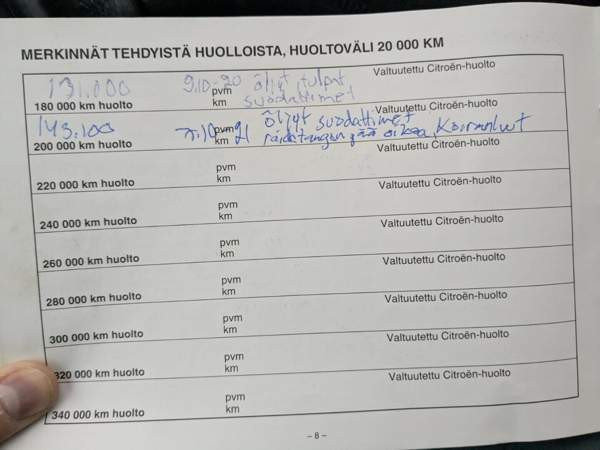 MERKINNÄT TEHDYISTÄ HUOLLOISTA, HUOLTOVÄLI 20 000 KM
131.000 9.10-20 öljyt, tulpat Valtuutettu Citroën-huolto
180 000 km huolto pvm km suodattimet
143.100 öljyt suodattimet Valtuutettu Citroën-huolto
200 000 km huolto pvm km 21 raidetangon pää oikea,
220 000 km huolto pvm km Valtuutettu Citroën-huolto
240 000 km huolto pvm km Valtuutettu Citroën-huolto
260 000 km huolto pvm km Valtuutettu Citroën-huolto
280 000 km huolto pvm km Valtuutettu Citroën-huolto
300 000 km huolto pvm km Valtuutettu Citroën-huolto
320 000 km huolto pvm km Valtuutettu Citroën-huolto
340 000 km huolto pvm km
– 8 –